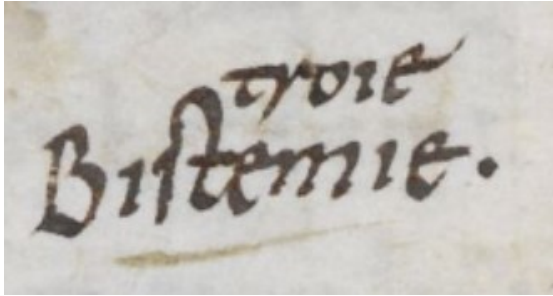 troie
Bistemie.